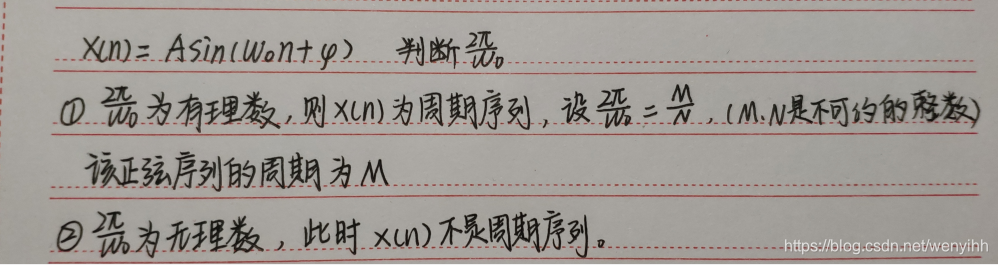 X(n)= Asin(ω₀n+φ) 判断2π/ω₀
① 2π/ω₀为有理数,则x(n)为周期序列,设2π/ω₀=M/N,(M、N是不可约的整数)
该正弦序列的周期为M
② 2π/ω₀为无理数,此时x(n)不是周期序列。
https://blog.csdn.net/wenyihh